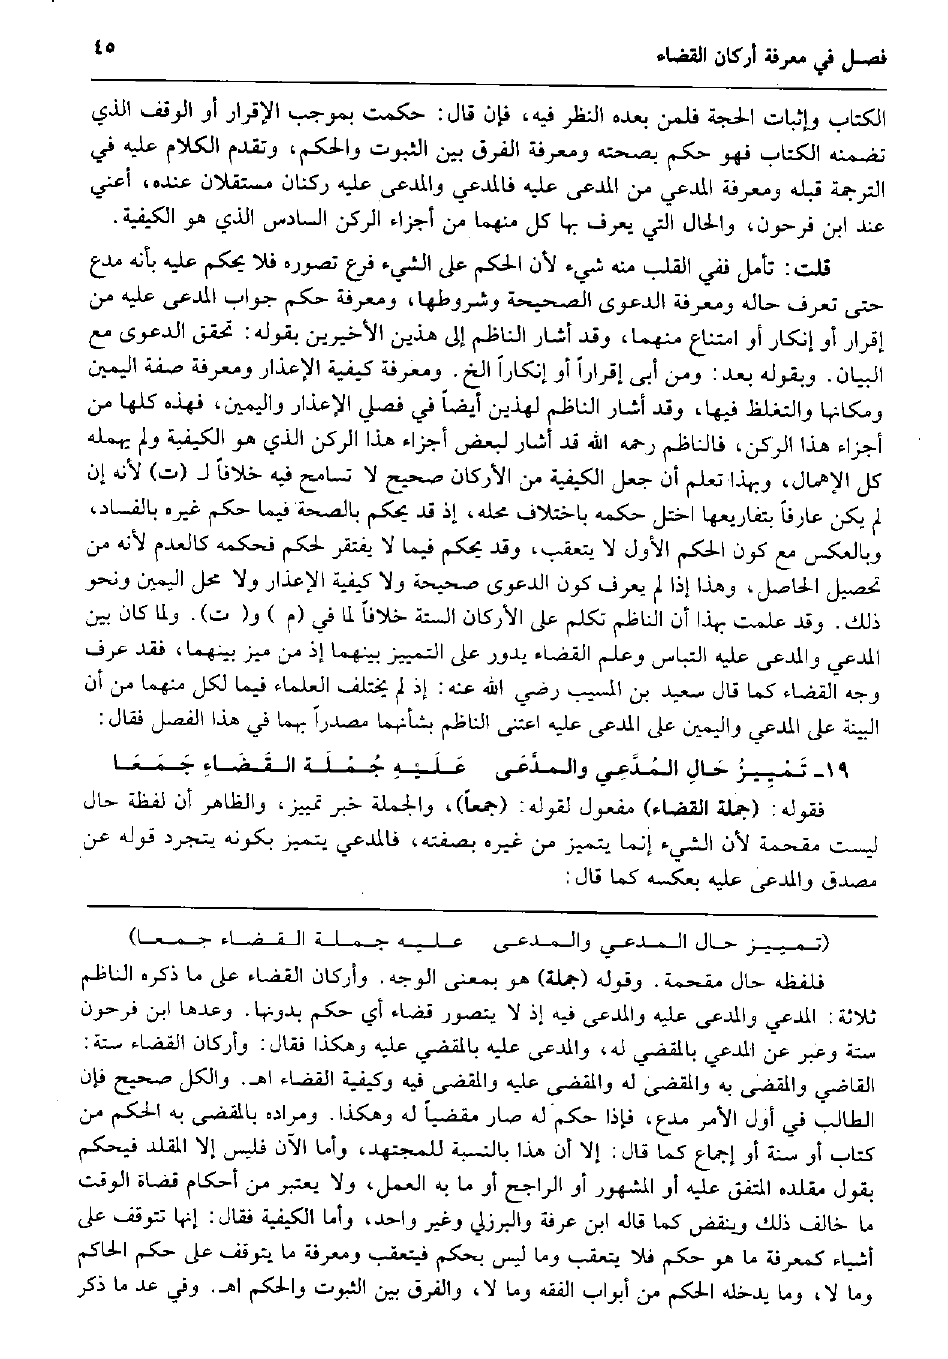 فصل في معرفة أركان القضاء
٤٥
الكتاب وإثبات الحجة فلمن بعده النظر فيه، فإن قال: حكمت بموجب الإقرار أو الوقف الذي
تضمنه الكتاب فهو حكم بصحته ومعرفة الفرق بين الثبوت والحكم، وتقدم الكلام عليه في
الترجمة قبله ومعرفة المدعي من المدعى عليه فالمدعي والمدعى عليه ركنان مستقلان عنده، أعني
عند ابن فرحون، والحال التي يعرف بها كل منهما من أجزاء الركن السادس الذي هو الكيفية.
قلت: تأمل ففي القلب منه شيء لأن الحكم على الشيء فرع تصوره فلا يحكم عليه بأنه مدع
حتى تعرف حاله ومعرفة الدعوى الصحيحة وشروطها، ومعرفة حكم جواب المدعى عليه من
إقرار أو إنكار أو امتناع منهما، وقد أشار الناظم إلى هذين الأخيرين بقوله: تحقق الدعوى مع
البيان. وبقوله بعد: ومن أبى إقراراً أو إنكاراً الخ. ومعرفة كيفية الإعذار ومعرفة صفة اليمين
ومكانها والتغلظ فيها، وقد أشار الناظم لهذين أيضاً في فصلي الإعذار واليمين، فهذه كلها من
أجزاء هذا الركن، فالناظم رحمه الله قد أشار لبعض أجزاء هذا الركن الذي هو الكيفية ولم يهمله
كل الإهمال، وبهذا تعلم أن جعل الكيفية من الأركان صحيح لا تسامح فيه خلافاً لـ (ت) لأنه إن
لم يكن عارفاً بتفاريعها اختل حكمه باختلاف محله، إذ قد يحكم بالصحة فيما حكم غيره بالفساد،
وبالعكس مع كون الحكم الأول لا يتعقب، وقد يحكم فيما لا يفتقر لحكم فحكمه كالعدم لأنه من
تحصيل الحاصل، وهذا إذا لم يعرف كون الدعوى صحيحة ولا كيفية الإعذار ولا محل اليمين ونحو
ذلك. وقد علمت بهذا أن الناظم تكلم على الأركان الستة خلافاً لما في (م) و( ت). ولما كان بين
المدعي والمدعى عليه التباس وعلم القضاء يدور على التمييز بينهما إذ من ميز بينهما، فقد عرف
وجه القضاء كما قال سعيد بن المسيب رضي الله عنه: إذ لم يختلف العلماء فيما لكل منهما من أن
البينة على المدعي واليمين على المدعى عليه اعتنى الناظم بشأنهما مصدراً بهما في هذا الفصل فقال:
١٩ـ تَمْيِيزُ حَالِ الْمُدَّعِي والمدَّعَى عَلَيْهِ جُمْلَةَ القَضَاءِ جَمَعَا
فقوله: (جملة القضاء) مفعول لقوله: (جمعاً)، والجملة خبر تمييز، والظاهر أن لفظة حال
ليست مقحمة لأن الشيء إنما يتميز من غيره بصفته، فالمدعي يتميز بكونه يتجرد قوله عن
مصدق والمدعى عليه بعكسه كما قال:
(تمييز حال المدعي والمدعى عليه جملة القضاء جمعا)
فلفظه حال مقحمة. وقوله (جملة) هو بمعنى الوجه. وأركان القضاء على ما ذكره الناظم
ثلاثة: المدعي والمدعى عليه والمدعى فيه إذ لا يتصور قضاء أي حكم بدونها. وعدها ابن فرحون
ستة وعبر عن المدعي بالمقضي له، والمدعى عليه بالمقضي عليه وهكذا فقال: وأركان القضاء ستة:
القاضي والمقضى به والمقضى له والمقضى عليه والمقضى فيه وكيفية القضاء اهـ. والكل صحيح فإن
الطالب في أول الأمر مدع، فإذا حكم له صار مقضياً له وهكذا. ومراده بالمقضى به الحكم من
كتاب أو سنة أو إجماع كما قال: إلا أن هذا بالنسبة للمجتهد، وأما الآن فليس إلا المقلد فيحكم
بقول مقلده المتفق عليه أو المشهور أو الراجح أو ما به العمل، ولا يعتبر من أحكام قضاة الوقت
ما خالف ذلك وينقض كما قاله ابن عرفة والبرزلي وغير واحد، وأما الكيفية فقال: إنها تتوقف على
أشياء كمعرفة ما هو حكم فلا يتعقب وما ليس بحكم فيتعقب ومعرفة ما يتوقف على حكم الحاكم
وما لا، وما يدخله الحكم من أبواب الفقه وما لا، والفرق بين الثبوت والحكم اهـ. وفي عد ما ذكر